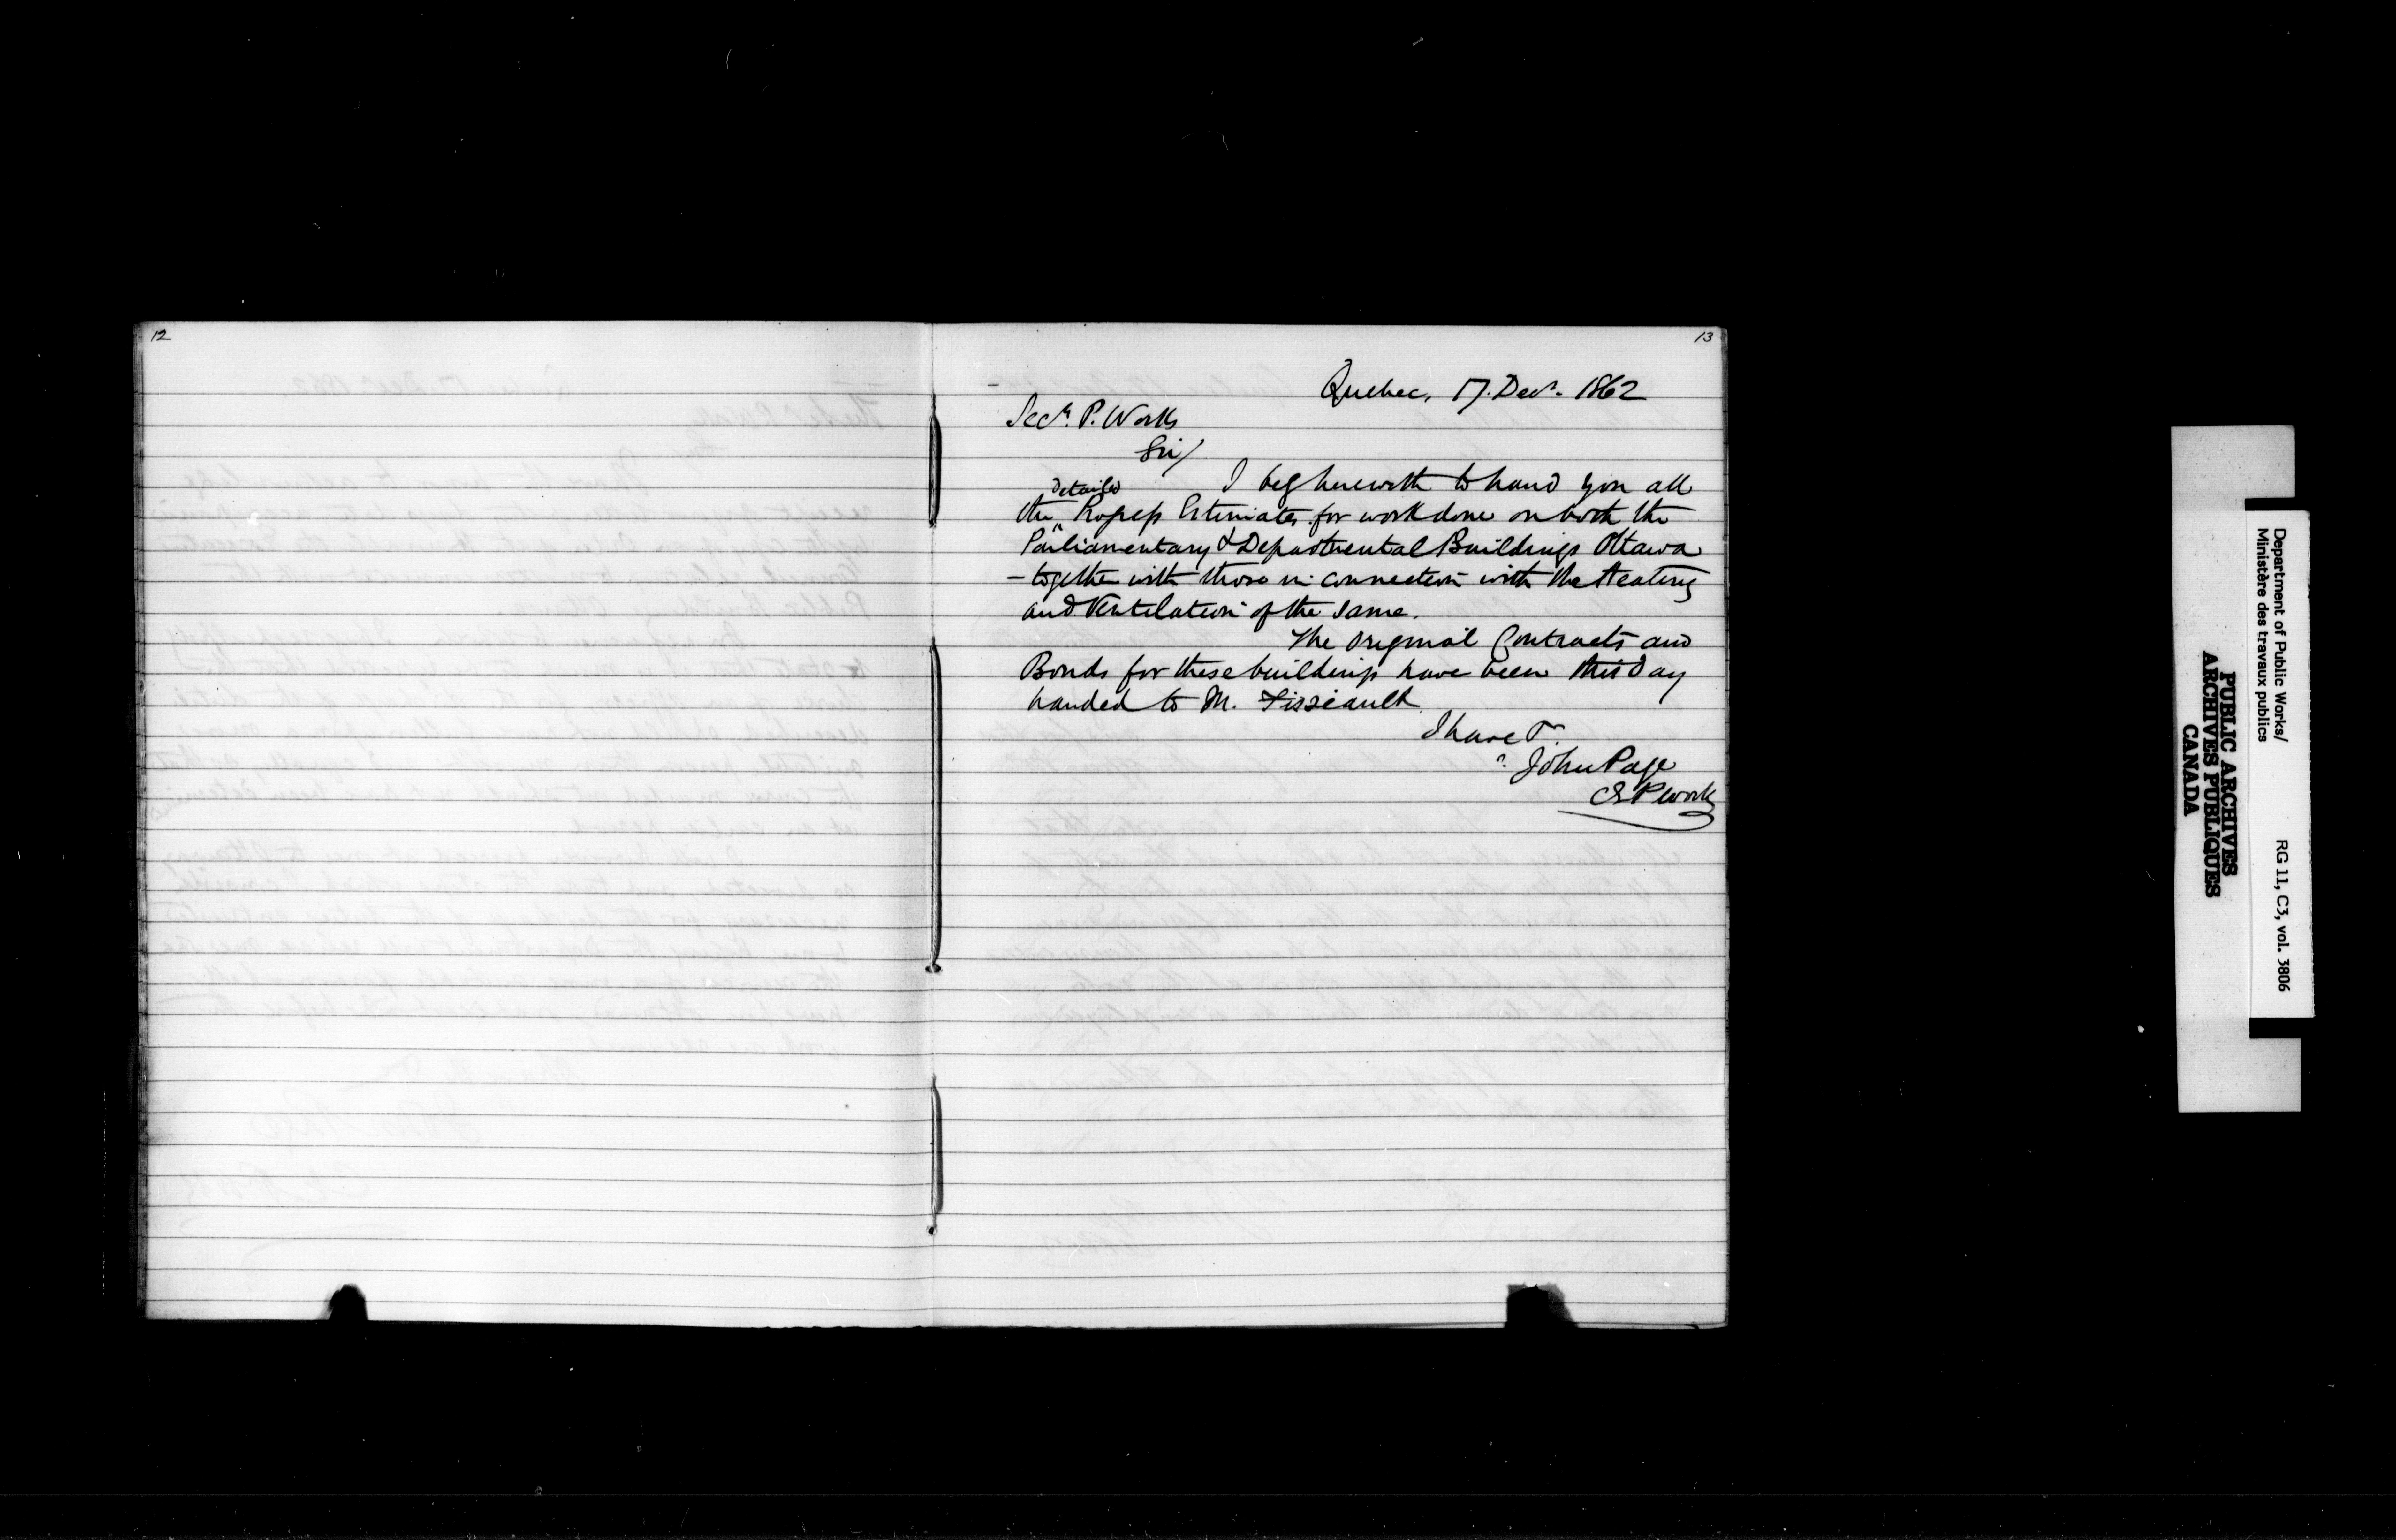 12
13
Quebec, 17. Decr. 1862
Secy. P. Works
Sir/
I beg herewith to hand you all
detailed
the Progress Estimates for work done on both the
Parliamentary & Departmental Buildings Ottawa
- together with those in connection with the Heating
and Ventilation of the same.
The Original Contracts and
Bonds for these buildings have been this day
handed to M. Fisseault
I have
John Page
CE P Works
Department of Public Works/
Ministère des travaux publics
RG 11, C3, vol. 3806
PUBLIC ARCHIVES
ARCHIVES PUBLIQUES
CANADA